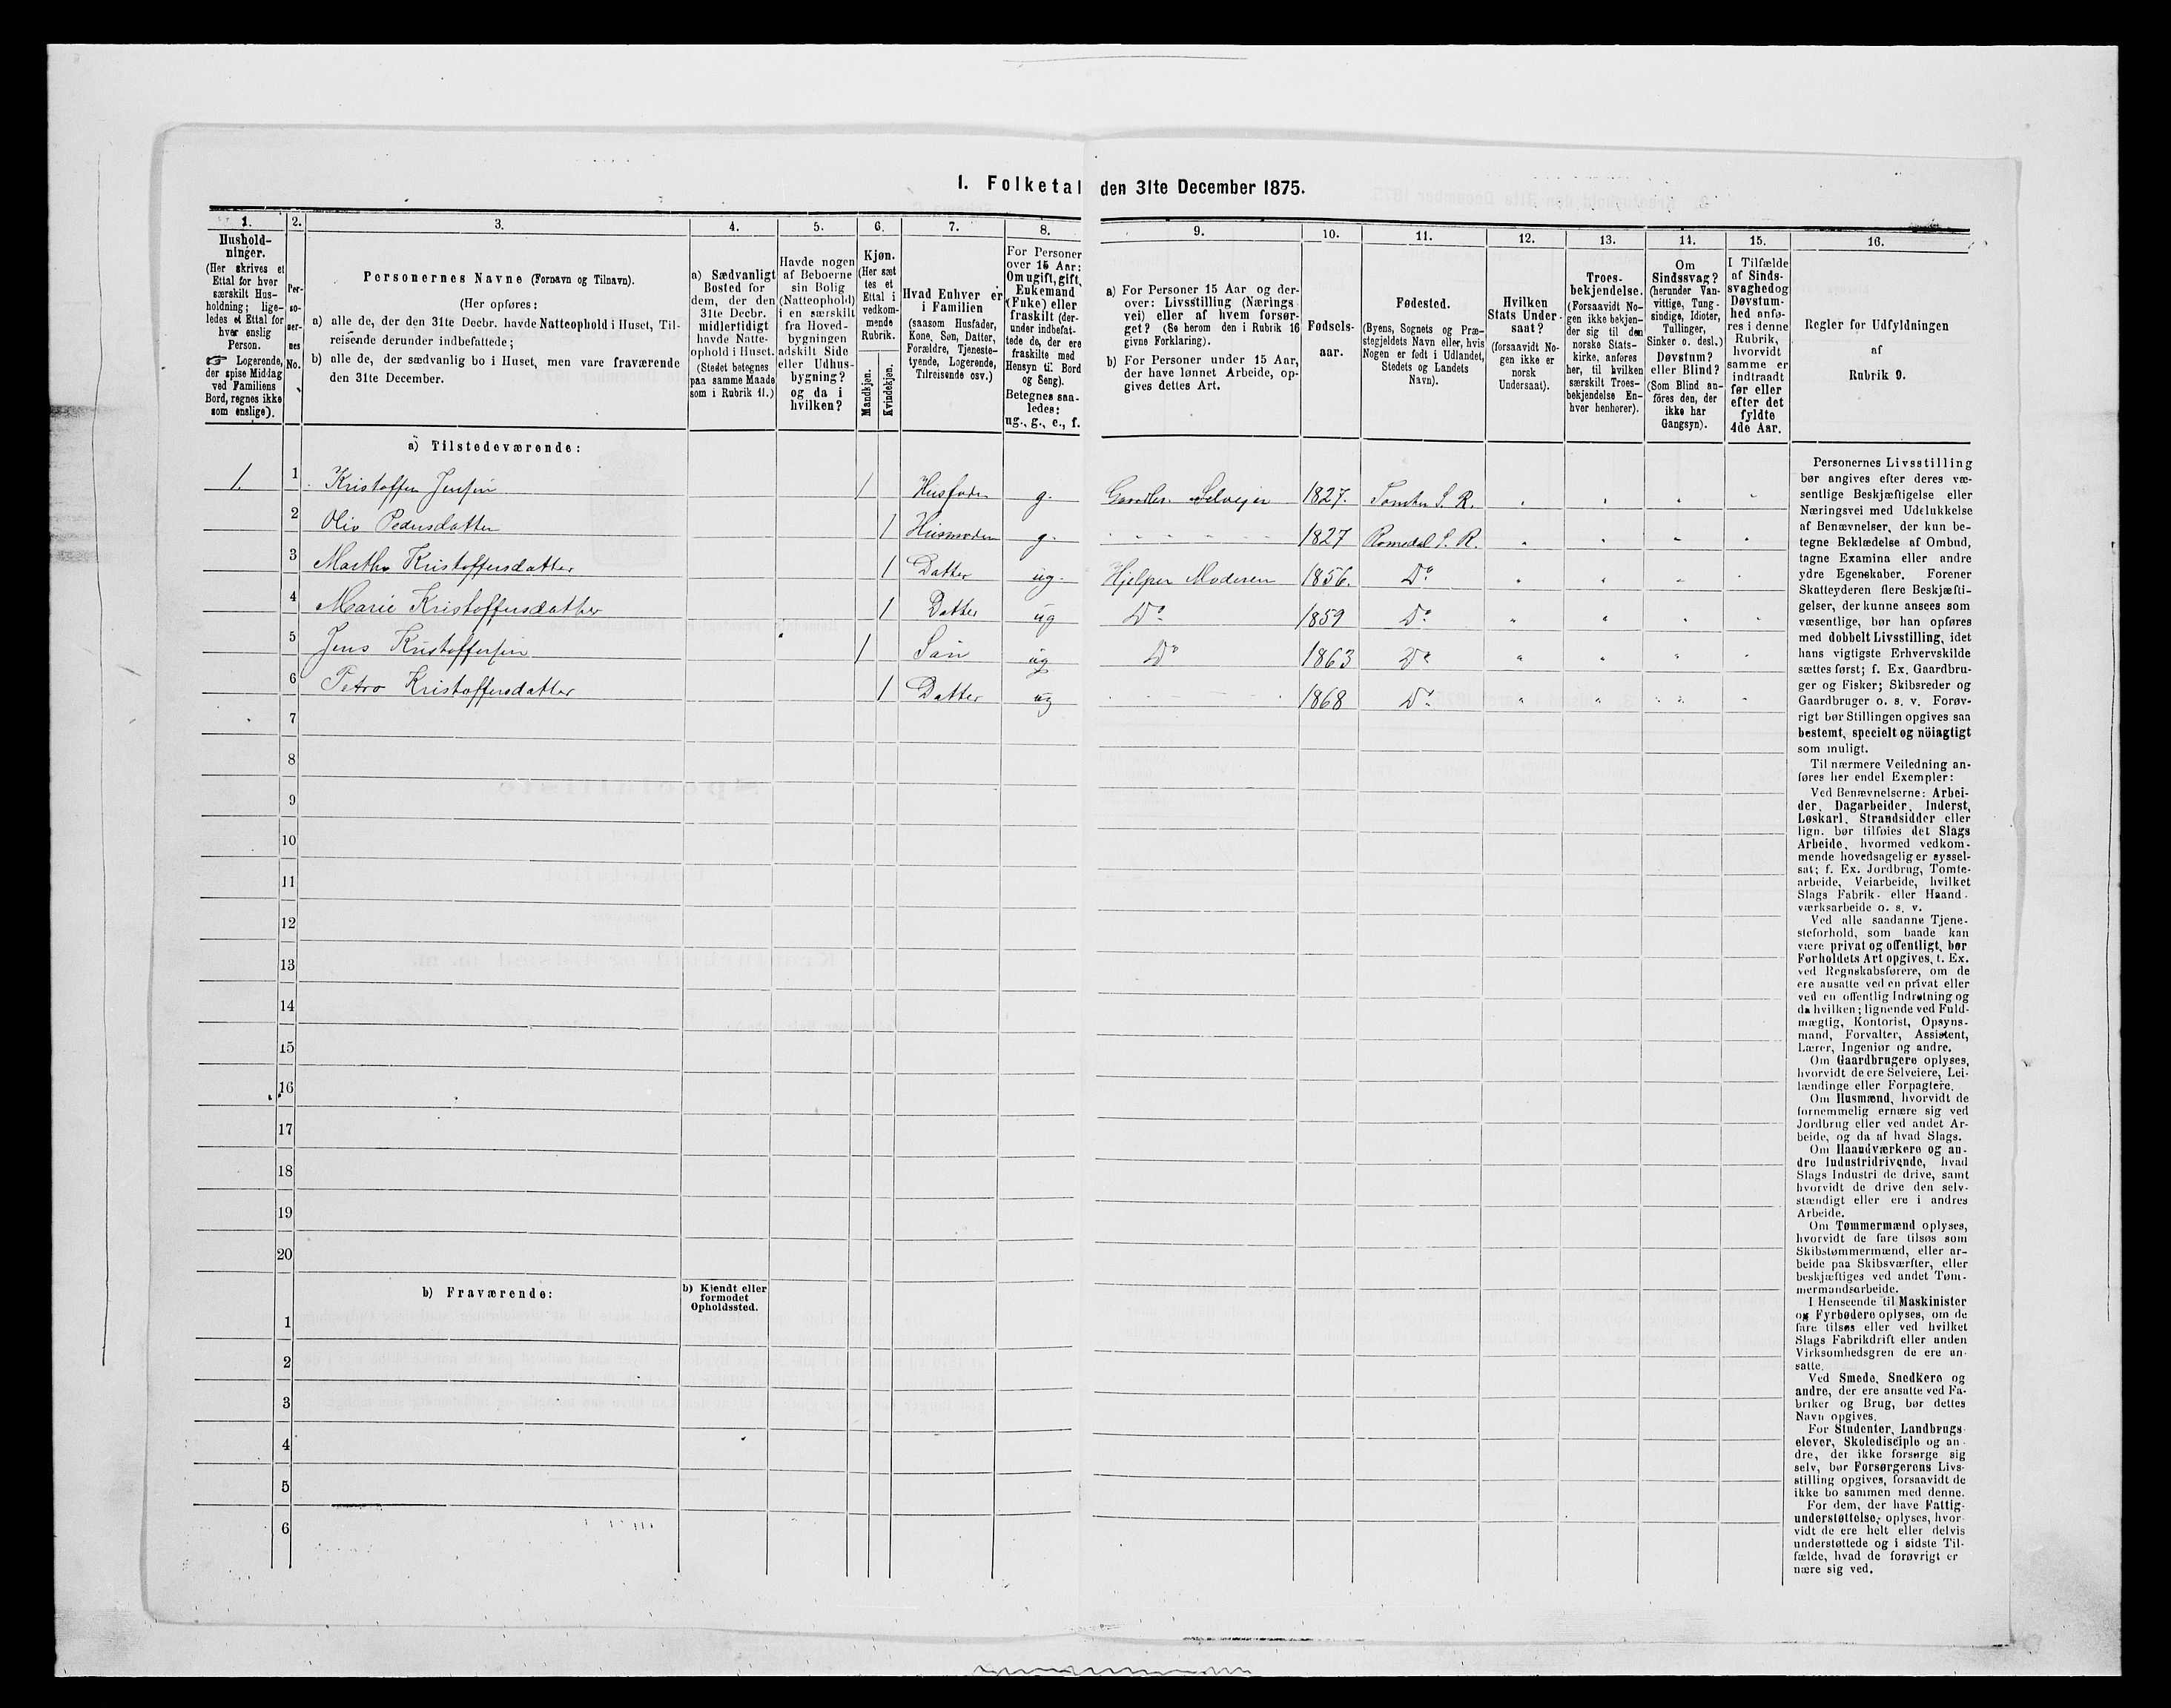 1. Folketal den 31te December 1875.
1.
2.
3.
4.
5.
6.
7.
8.
9.
10.
11.
12.
13.
14.
15.
16.
Hushold-
ninger.
(Her skrives et
Ettal for hver
særskilt Hus-
holdning; lige-
ledes et Ettal for
hver enslig
Person.
☞ Logerende,
der spise Middag
ved Familiens
Bord, regnes ikke
som enslige).
Per-
so-
ner-
nes
No.
Personernes Navne (Fornavn og Tilnavn).
(Her opføres:
a) alle de, der den 31te Decbr. havde Natteophold i Huset, Til-
reisende derunder indbefattede;
b) alle de, der sædvanlig bo i Huset, men vare fraværende
den 31te December.
a) Sædvanligt
Bosted for
dem, der den
31te Decbr.
midlertidigt
havde Natte-
ophold i Huset.
(Stedet betegnes
paa samme Maade
som i Rubrik 11.)
Havde nogen
af Beboerne
sin Bolig
(Natteophold)
i en særskilt
fra Hoved-
bygningen
adskilt Side
eller Udhus-
bygning?
og da i
hvilken?
Kjøn.
(Her sæt
tes et
Ettal i
vedkom-
mende
Rubrik.
Mandkjøn.
Kvindekjøn.
Hvad Enhver er
i Familien
(saasom Husfader,
Kone, Søn, Datter,
Forældre, Tjeneste-
tyende, Logerende,
Tilreisende osv.)
For Personer
over 15 Aar:
Om ugift, gift,
Enkemand
(Enke) eller
fraskilt (der-
under indbefat-
tede de, der ere
fraskilte med
Hensyn til Bord
og Seng).
Betegnes saa-
ledes:
ug., g., e., f.
a) For Personer 15 Aar og der-
over: Livsstilling (Nærings
vei) eller af hvem forsør-
get? (Se herom den i Rubrik 16
givne Forklaring).
b) For Personer under 15 Aar,
der have lønnet Arbeide, op-
gives dettes Art.
Fødsels-
aar.
Fødested.
(Byens, Sognets og Præ-
stegjeldets Navn eller, hvis
Nogen er født i Udlandet,
Stedets og Landets
Navn).
Hvilken
Stats Under-
saat?
(forsaavidt No-
gen ikke er
norsk
Undersaat).
Troes-
bekjendelse.
(Forsaavidt No-
gen ikke bekjen-
der sig til den
norske Stats-
kirke, anføres
her, til hvilken
særskilt Troes-
bekjendelse En-
hver henhører).
Om
Sindssvag?
(herunder Van-
vittige, Tung-
sindige, Idioter,
Tullinger,
Sinker o. desl.)
Døvstum?
eller Blind?
(Som Blind an-
føres den, der
ikke har
Gangsyn).
I Tilfælde
af Sinds-
svaghed og
Døvstum-
hed anfø-
res i denne
Rubrik,
hvorvidt
samme er
indtraadt
før eller
efter det
fyldte
4de Aar.
Regler for Udfyldningen
af
Rubrik 9.
a) Tilstedeværende:
1. 1 Kristoffer Jensen 1 Husfader g. Gaardbr. Selveier 1827. S. R.
2 Oliv Pedersdatter 1 Husmoder g. 1827 Romedal S. R.
3 Marthe Kristoffersdatter 1 Datter ug. Hjelper Moderen 1856. Do
4 Marie Kristoffersdatter 1 Datter ug Do 1859 Do
5 Jens Kristoffersen 1 Søn ug Do 1863 Do
6 Petro Kristoffersdatter 1 Datter ug 1868 Do
7
8
9
10
11
12
13
14
15
16
17
18
19
20
b) Fraværende:
b) Kjendt eller
formodet
Opholdssted.
1
2
3
4
5
6
Personernes Livsstilling
bør angives efter deres væ-
sentlige Beskjæftigelse eller
Næringsvei med Udelukkelse
af Benævnelser, der kun be-
tegne Beklædelse af Ombud,
tagne Examina eller andre
ydre Egenskaber. Forener
Skatteyderen flere Beskjæfti-
gelser, der kunne ansees som
væsentlige, bør han opføres
med dobbelt Livsstilling, idet
hans vigtigste Erhvervskilde
sættes først; f. Ex. Gaardbru-
ger og Fisker; Skibsreder og
Gaardbruger o. s. v. Forøv-
rigt bør Stillingen opgives saa
bestemt, specielt og nöiagtigt
som muligt.
Til nærmere Veiledning an-
føres her endel Exempler:
Ved Benævnelserne: Arbei-
der, Dagarbeider, Inderst,
Løskarl, Strandsidder eller
lign. bør tilføies det Slags
Arbeide, hvormed vedkom-
mende hovedsagelig er syssel-
sat; f. Ex. Jordbrug, Tomte-
arbeide, Veiarbeide, hvilket
Slags Fabrik- eller Haand-
værksarbeide o. s. v.
Ved alle saadanne Tjene-
steforhold, som baade kan
være privat og offentligt, bør
Forholdets Art opgives, t. Ex.
ved Regnskabsførere, om de
ere ansatte ved en privat eller
ved en offentlig Indretning og
da hvilken; lignende ved Fuld-
mægtig, Kontorist, Opsyns-
mand, Forvalter, Assistent,
Lærer, Ingeniør og andre.
Om Gaardbrugere oplyses,
hvorvidt de ere Selveiere, Lei-
lændinge eller Forpagtere.
Om Husmænd, hvorvidt de
fornemmelig ernære sig ved
Jordbrug eller ved andet Ar-
beide, og da af hvad Slags.
Om Haandværkere og an-
dre Industridrivende, hvad
Slags Industri de drive, samt
hvorvidt de drive den selv-
stændigt eller ere i andres
Arbeide.
Om Tømmermænd oplyses,
hvorvidt de fare tilsøs som
Skibstømmermænd, eller ar-
beide paa Skibsværfter, eller
beskjæftiges ved andet Tøm-
mermandsarbeide.
I Henseende til Maskinister
og Fyrbødere oplyses, om de
fare tilsøs eller ved hvilket
Slags Fabrikdrift eller anden
Virksomhedsgren de ere an-
satte.
Ved Smede, Snedkere og
andre, der ere ansatte ved Fa-
briker og Brug, bør dettes
Navn opgives.
For Studenter, Landbrugs-
elever, Skoledisciple og an-
dre, der ikke forsørge sig
selv, bør Forsørgerens Livs-
stilling opgives, forsaavidt de
ikke bo sammen med denne.
For dem, der have Fattig-
understøttelse, oplyses, hvor-
vidt de ere helt eller delvis
understøttede og i sidste Til-
fælde, hvad de forøvrigt er
nære sig ved.